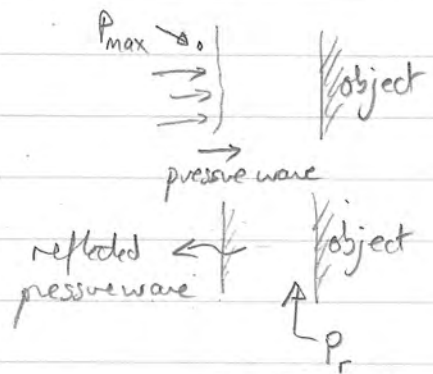 Pmax
object
pressure wave
reflected
pressure wave
object
Pr